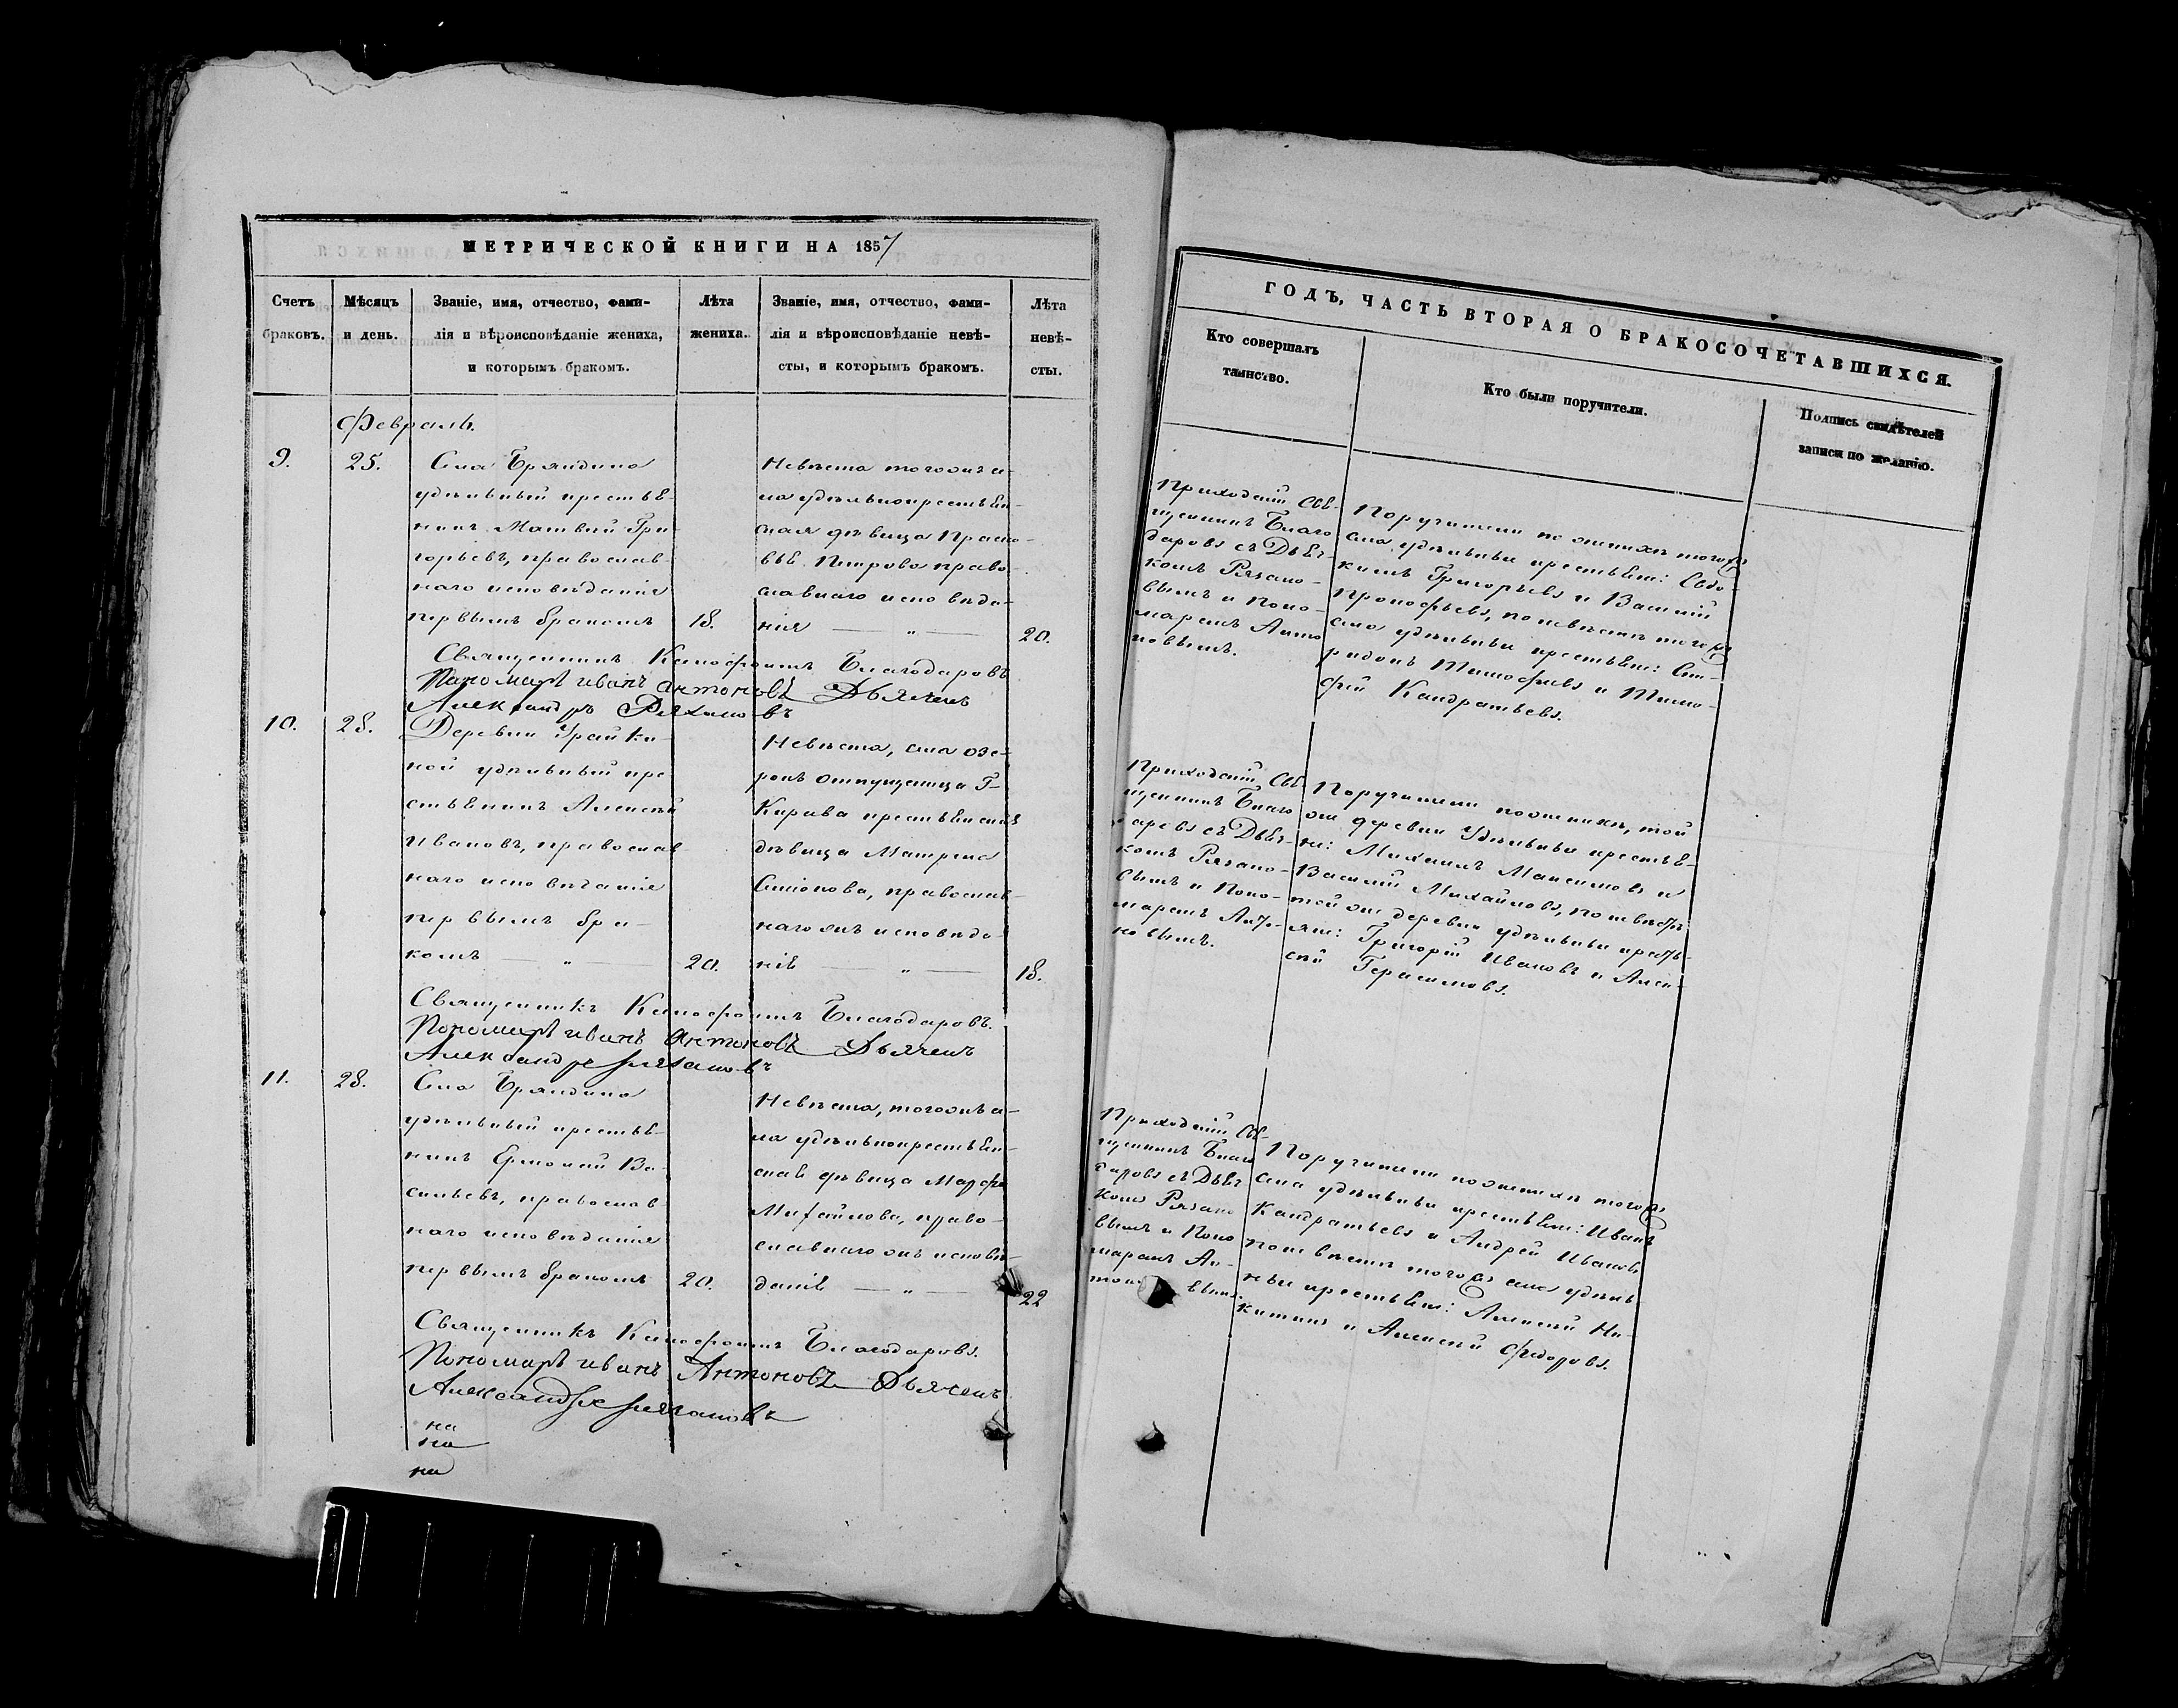 МЕТРИЧЕСКОЙ КНИГИ НА 1857
Счетъ браковъ.
Мѣсяцъ и день.
Званіе, имя, отчество, фами-
лія и вѣроисповѣданіе жениха,
и которымъ бракомъ.
Лѣта жениха.
Званіе, имя, отчество, фами-
лія и вѣроисповѣданіе невѣ-
сты, и которымъ бракомъ.
Лѣта невѣ-
сты.
Февраль.
9.
25.
Села Бряндина
удѣльный крестья-
нинъ Матвей Гри-
горьевъ, православ-
наго исповѣданія
первымъ бракомъ
18.
Невѣста тогожъ се-
ла удѣльнокрестьян-
ская дѣвица Праско-
вья Петрова право-
славнаго исповѣда-
нія — „ —
20.
Священникъ Ксенофонтъ Благодаровъ
Пономарь иванъ антоновъ Дьячекъ
Александръ Рязановъ
10.
28.
Деревни Урайки-
ной удѣльный кре-
стьянинъ Алексѣй
Ивановъ, православ-
наго исповѣданія
первымъ бра-
комъ — „ —
20.
Невѣста, села озе-
рокъ отпущеница Г-
Кирѣва крестьянская
дѣвица Матрена
православ-
наго жъ исповѣда-
нія — „ —
18.
Священникъ Ксенофонтъ Благодаровъ.
Пономарь иванъ Антоновъ Дьячекъ
Александръ Рязановъ
11.
28.
Села Бряндина
удѣльный крестья-
нинъ Ермолай Ва-
сильевъ, православ-
наго исповѣданія
первымъ бракомъ
20.
Невѣста, тогожъ се-
ла удѣльнокрестьян-
ская дѣвица Марфа
Михайлова, право-
славнаго жъ исповѣ-
данія — „ —
22
Священникъ Ксенофонтъ Благодаровъ.
Пономарь иванъ Антоновъ Дьячекъ
Александръ Рязановъ
на
на
на
ГОДЪ, ЧАСТЬ ВТОРАЯ О БРАКОСОЧЕТАВШИХСЯ.
Кто совершалъ
таинство.
Кто были поручители.
Подпись свидѣтелей
записи по желанію.
Приходскій Свя-
щенникъ Благо
даровъ съ Дьяч-
комъ Рязано-
вымъ и Поно-
маремъ Анто
новымъ.
Поручители по женихѣ тогожъ
села удѣльные крестьяне:
Григорьевъ и Василій
Прокофьевъ, по невѣстѣ тогожъ
села удѣльные крестьяне: Спи-
ридонъ Тимофѣевъ и Тимо-
фей Кандратьевъ.
Приходскій Свя-
щенникъ Благо
даровъ съ Дьяч-
комъ Рязано-
вымъ и Поно-
маремъ Анто-
новымъ.
Поручители по женихѣ, той
же деревни Удѣльные крестья-
не: Михаилъ Максимовъ и
Василій Михайловъ, по невѣстѣ
той же деревни удѣльные кресть-
яне: Григорій Ивановъ и Алек-
сѣй Герасимовъ.
Приходскій Свя-
щенникъ Благо
даровъ съ Дьяч
комъ Рязано
вымъ и Поно
маремъ Ан-
тоновымъ.
Поручители по женихѣ тогожъ
села удѣльные крестьяне: Иванъ
Кандратьевъ и Андрей Ивановъ
по невѣстѣ тогожъ села удѣль
ные крестьяне: Алексѣй Ни-
китинъ и Алексѣй Федоровъ.